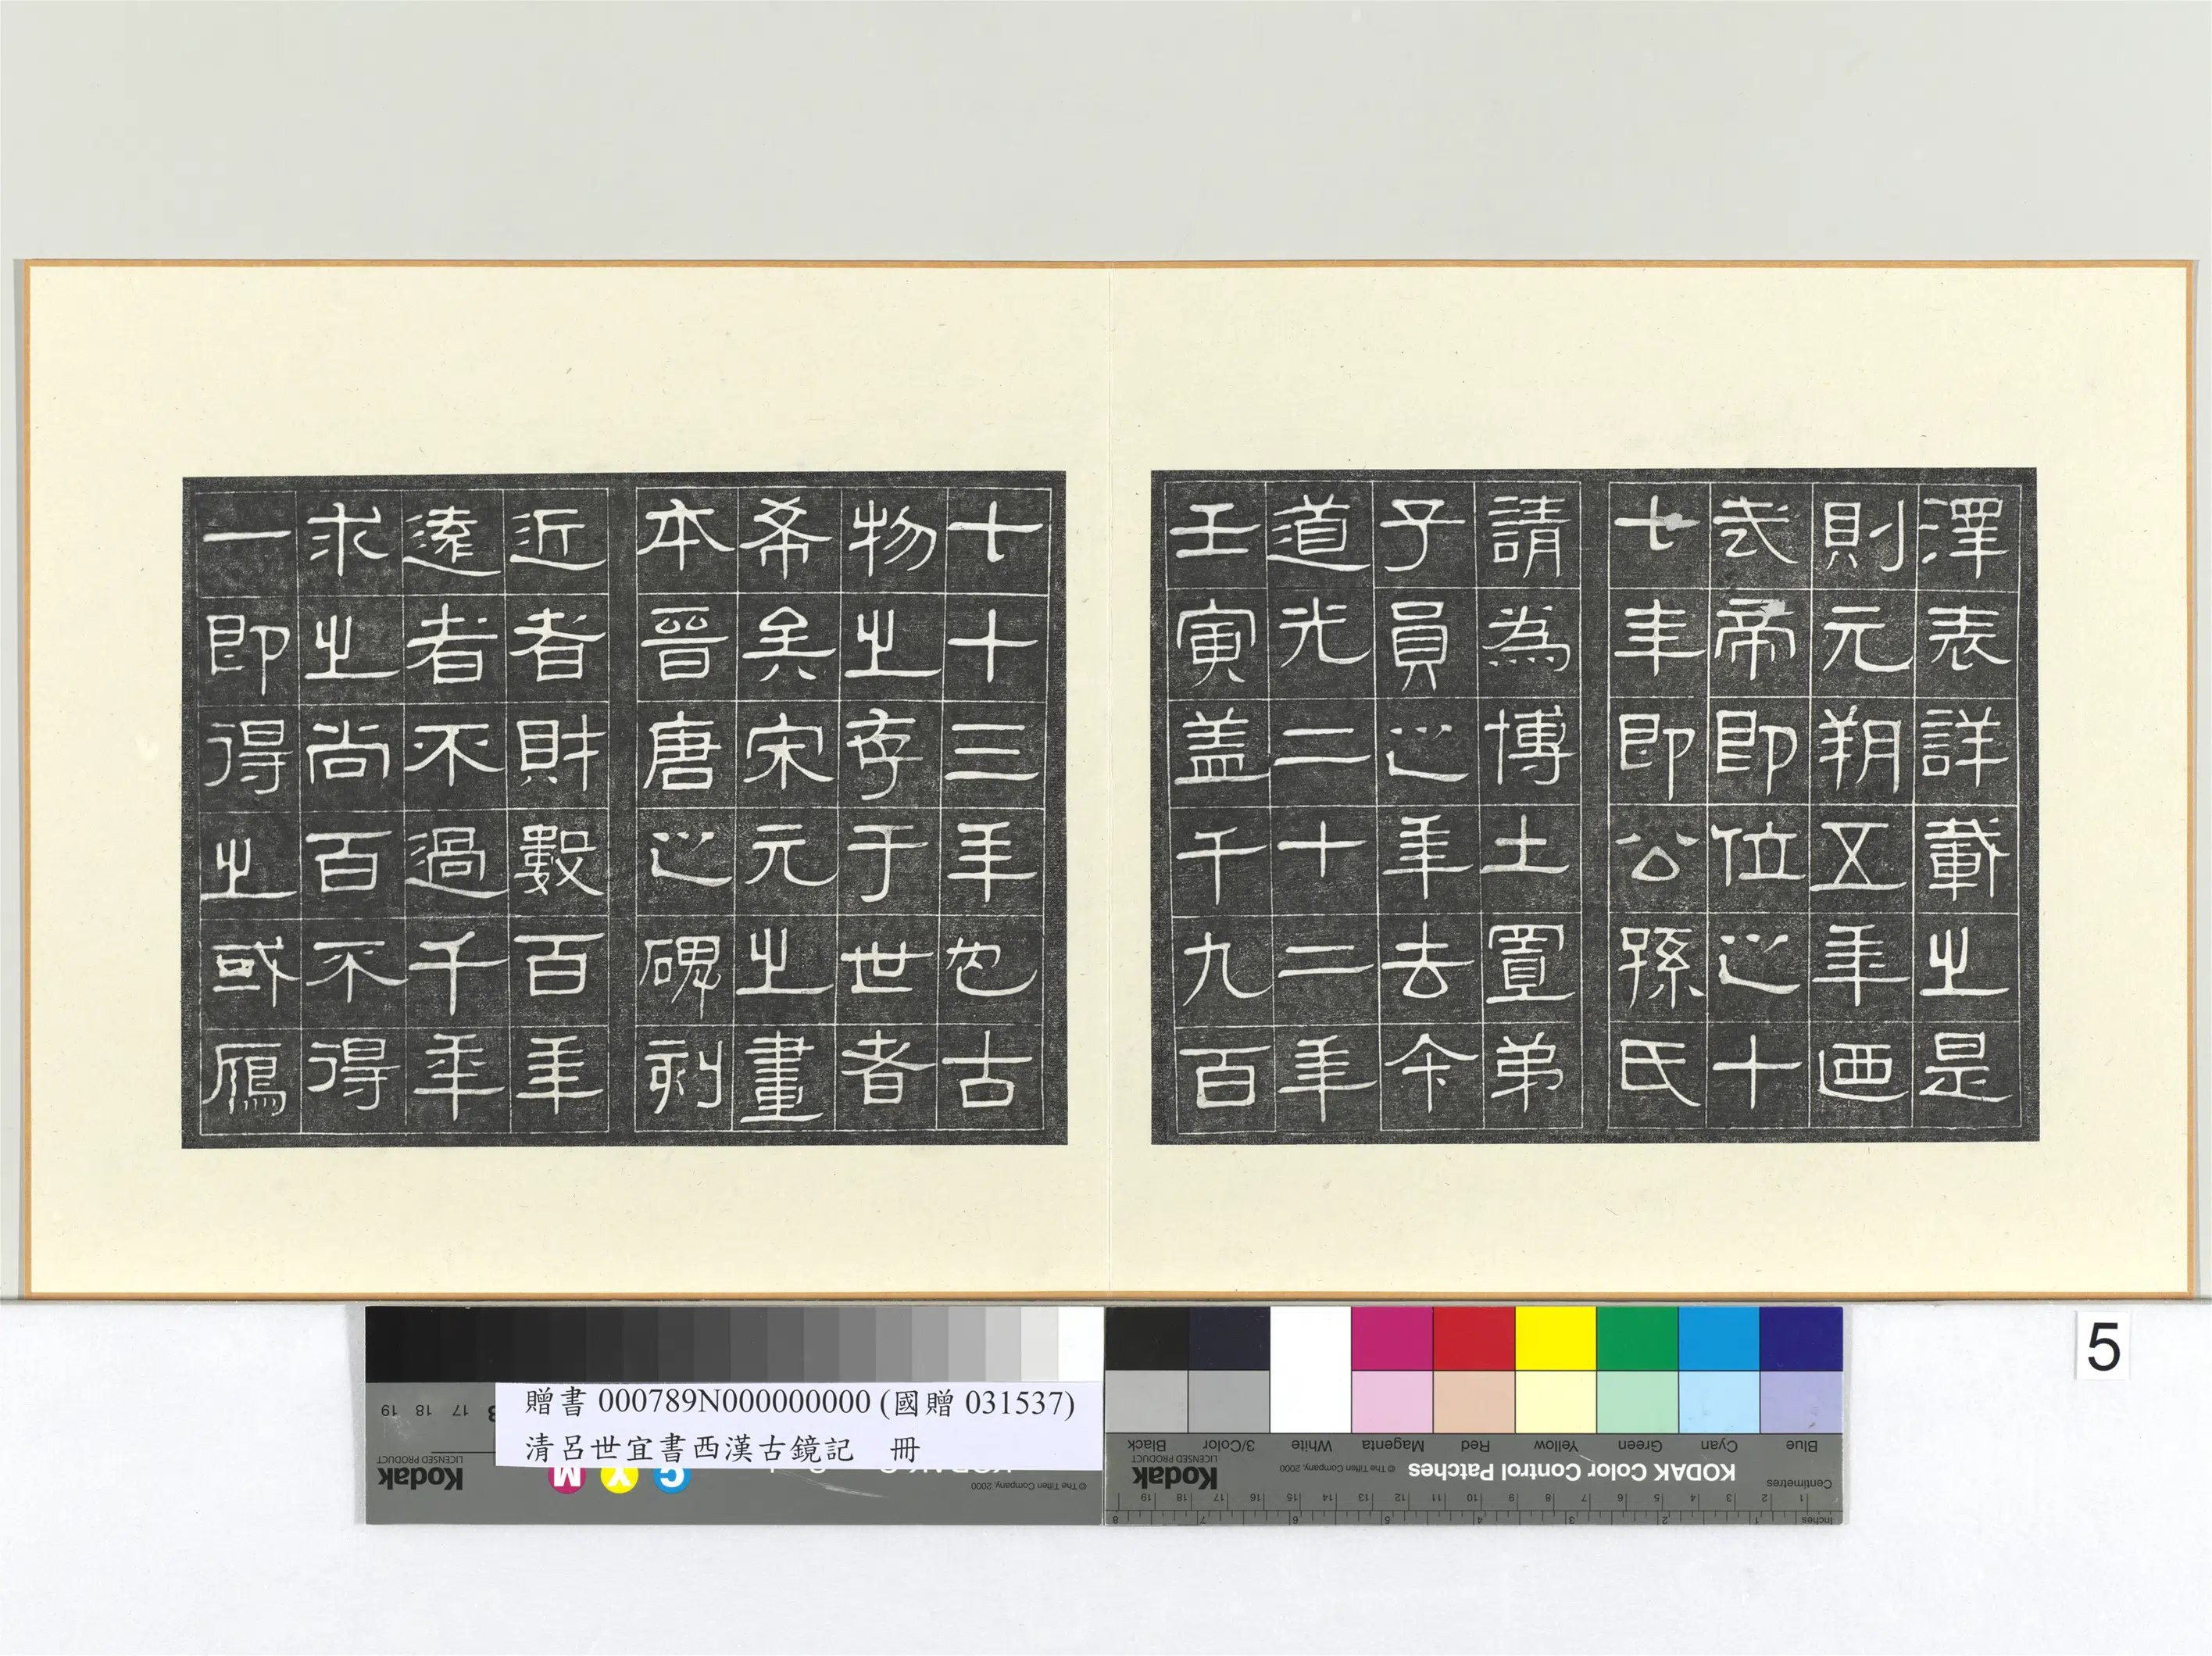 澤表詳載之是
則元朔五年西
武帝即位之十
七年即公孫氏
請為博士置弟
子員之年去今
道光二十二年
壬寅蓋千九百
七十三年也古
物之存于世者
希矣宋元之畫
本晉唐之碑刻
近者財數百年
遠者不過千年
求之尚百不得
一即得之或鴈
5
贈書 000789N000000000 (國贈 031537)
清呂世宜書西漢古鏡記 冊
Blue Cyan Green Yellow Red Magenta White 3/Color Black
KODAK Color Control Patches
© The Tiffen Company, 2000
Kodak
LICENSED PRODUCT
Centimetres
Inches
C Y M
© The Tiffen Company, 2000
Kodak
LICENSED PRODUCT
17 18 19